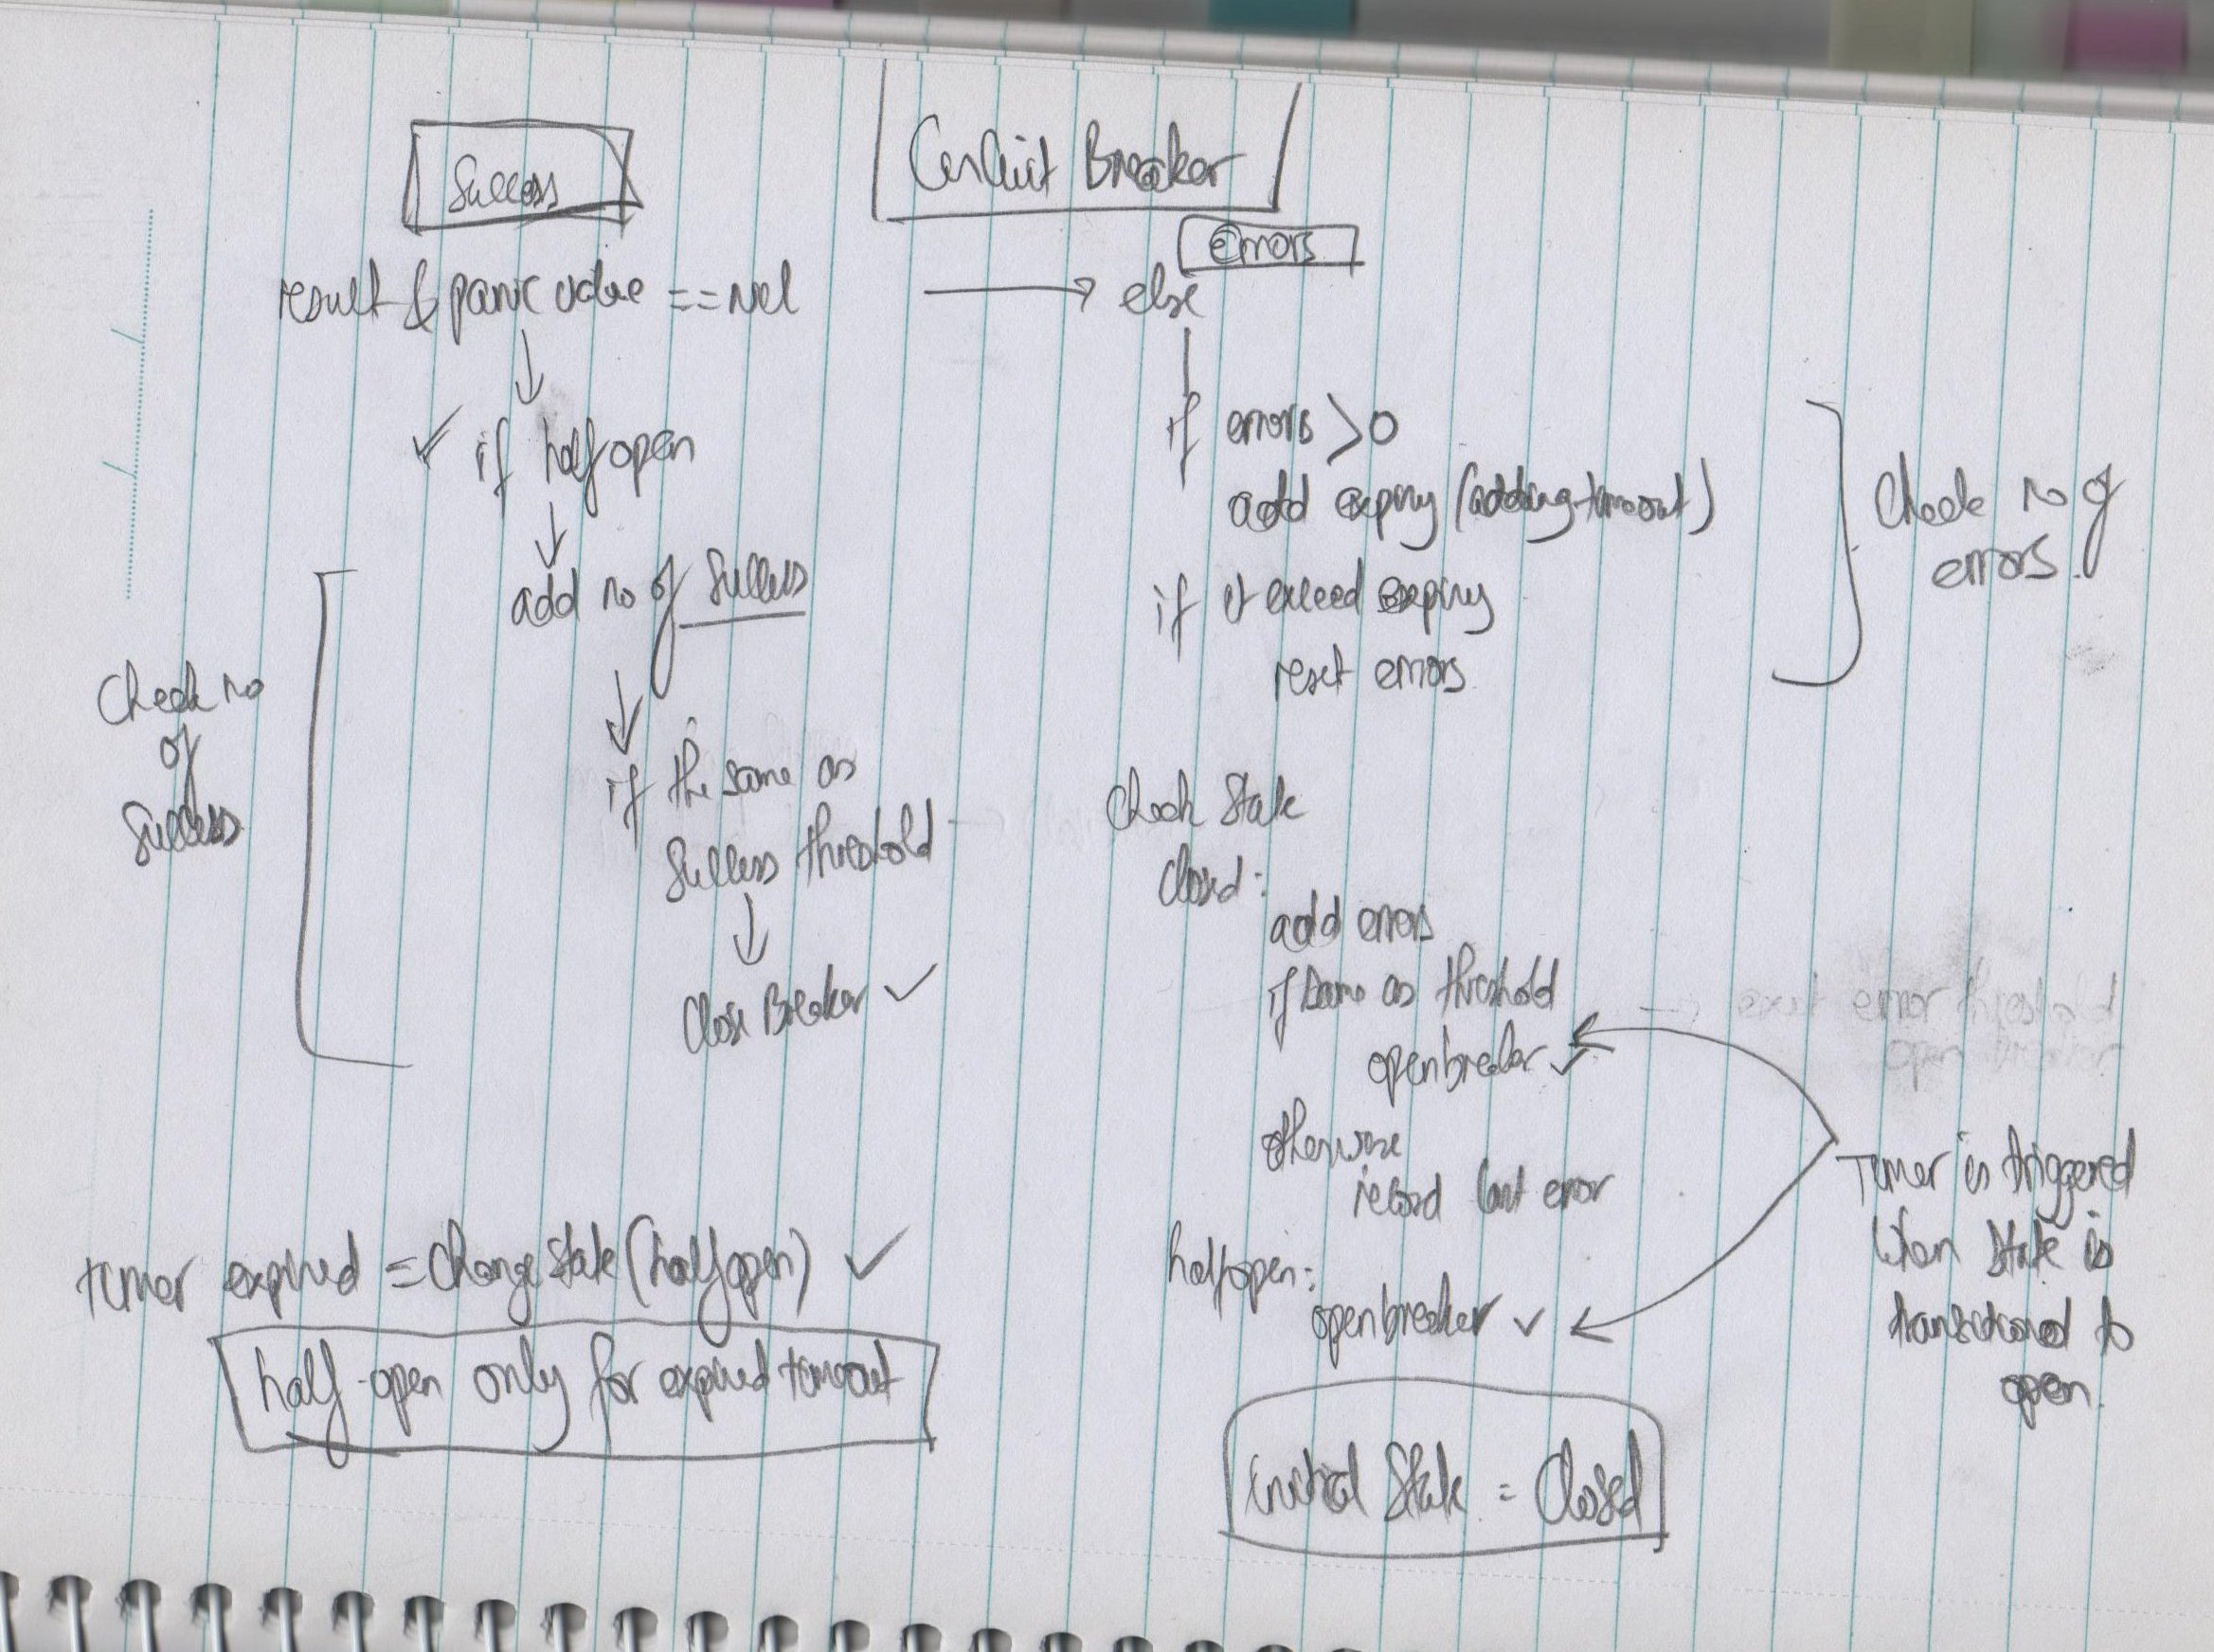 Success
Circuit Breaker
Errors
result & panic value == nil
else
if half open
add no of success
if the same as
success threshold
Close Breaker
Check no
of
success
if errors > 0
add expiry (adding timeout)
if it exceed expiry
reset errors
Check no of
errors.
Check State
Closed:
add errors
if same as threshold
open breaker
otherwise
record last error
halfopen:
open breaker
Timer is triggered
when state is
transitioned to
open.
timer expired = Change State (half open)
half-open only for expired timeout
initial State = Closed